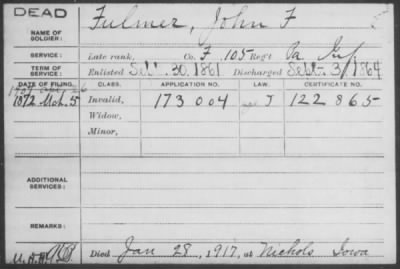 DEAD
NAME OF SOLDIER:
Fulmer, John F
SERVICE:
Late rank, Co. F, 105 Reg't Pa Inf
TERM OF SERVICE:
Enlisted Sept. 30, 1861 Discharged Sept. 3, 1864
DATE OF FILING. CLASS. APPLICATION NO. LAW. CERTIFICATE NO.
1872 Mch. 5 Invalid, 173004 J 122865
Widow,
Minor,
ADDITIONAL SERVICES:
REMARKS:
Died Jan 28, 1917, at Nichols Iowa